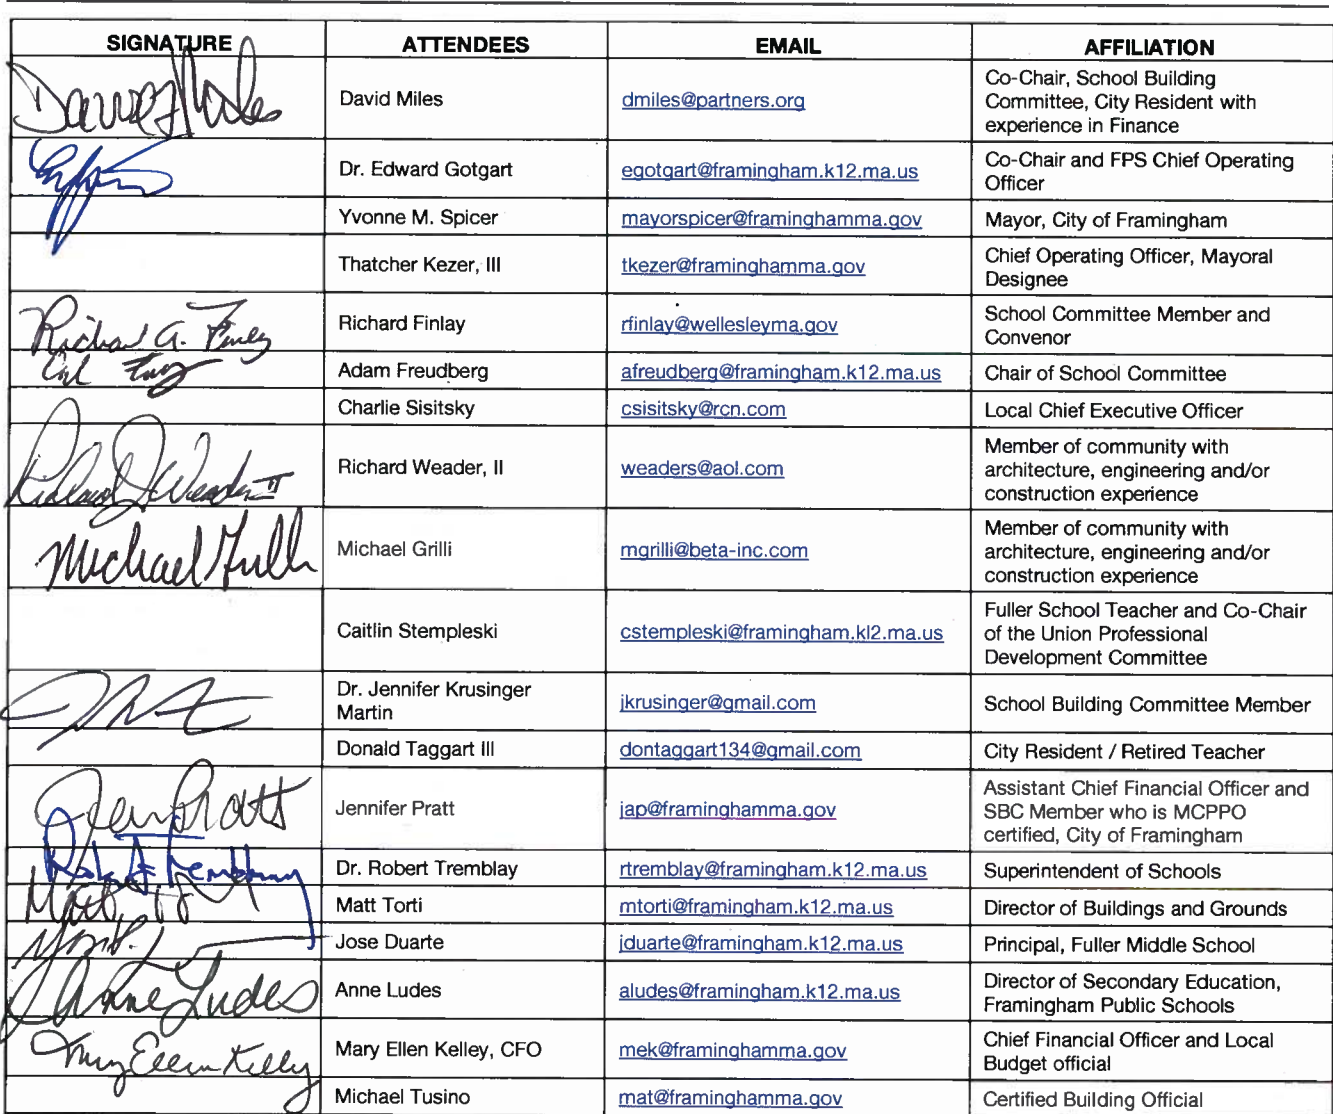 SIGNATURE ATTENDEES EMAIL AFFILIATION
David Miles dmiles@partners.org Co-Chair, School Building
Committee, City Resident with
experience in Finance
Dr. Edward Gotgart egotgart@framingham.k12.ma.us Co-Chair and FPS Chief Operating
Officer
Yvonne M. Spicer mayorspicer@framinghamma.gov Mayor, City of Framingham
Thatcher Kezer, III tkezer@framinghamma.gov Chief Operating Officer, Mayoral
Designee
Richard A. Finlay Richard Finlay rfinlay@wellesleyma.gov School Committee Member and
Convenor
Adam Freudberg afreudberg@framingham.k12.ma.us Chair of School Committee
Charlie Sisitsky csisitsky@rcn.com Local Chief Executive Officer
Richard J Weader II Richard Weader, II weaders@aol.com Member of community with
architecture, engineering and/or
construction experience
Michael Grilli Michael Grilli mgrilli@beta-inc.com Member of community with
architecture, engineering and/or
construction experience
Caitlin Stempleski cstempleski@framingham.kl2.ma.us Fuller School Teacher and Co-Chair
of the Union Professional
Development Committee
Dr. Jennifer Krusinger
Martin jkrusinger@gmail.com School Building Committee Member
Donald Taggart III dontaggart134@gmail.com City Resident / Retired Teacher
Jen Pratt Jennifer Pratt jap@framinghamma.gov Assistant Chief Financial Officer and
SBC Member who is MCPPO
certified, City of Framingham
Dr. Robert Tremblay rtremblay@framingham.k12.ma.us Superintendent of Schools
Matt Torti mtorti@framingham.k12.ma.us Director of Buildings and Grounds
Jose Duarte jduarte@framingham.k12.ma.us Principal, Fuller Middle School
Anne Ludes Anne Ludes aludes@framingham.k12.ma.us Director of Secondary Education,
Framingham Public Schools
Mary Ellen Kelley Mary Ellen Kelley, CFO mek@framinghamma.gov Chief Financial Officer and Local
Budget official
Michael Tusino mat@framinghamma.gov Certified Building Official